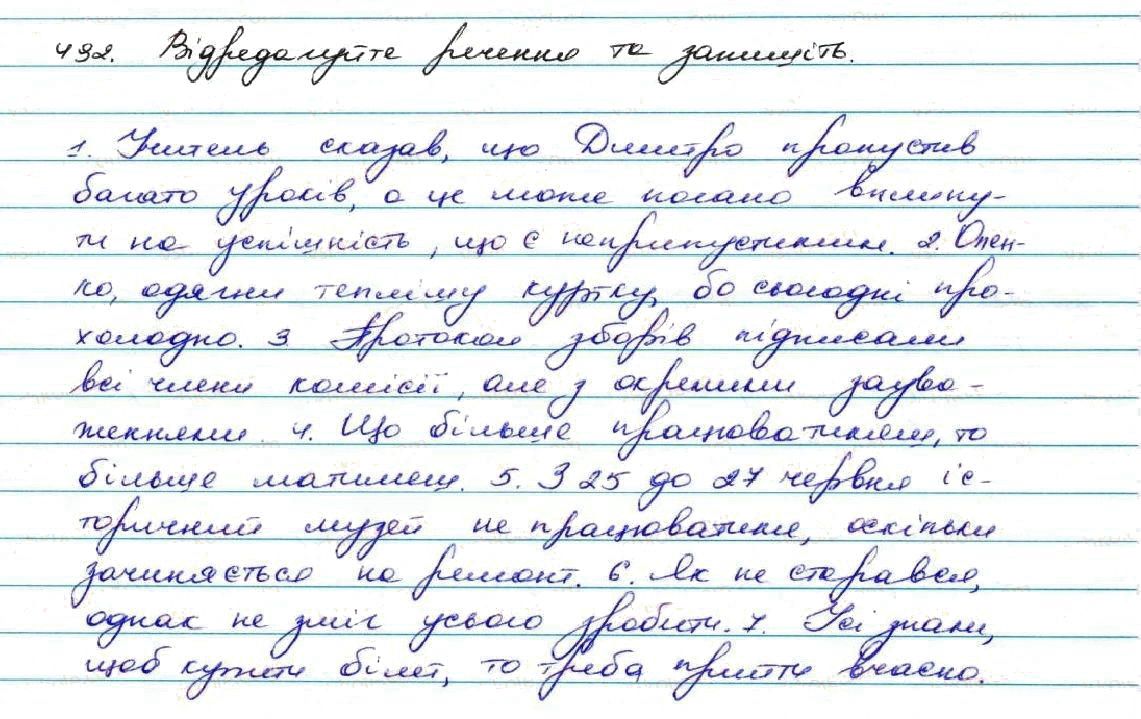 432. Відредагуйте речення та запишіть.
1. Учитель сказав, що Дмитро пропустив
багато уроків, а це може погано вплину-
ти на успішність, що є неприпустимим. 2. Олен-
ко, одягни теплішу куртку, бо сьогодні про-
холодно. 3. Протокол зборів підписали
всі члени комісії, але з окремими заува-
женнями. 4. Що більше працюватимеш, то
більше матимеш. 5. З 25 до 27 червня іс-
торичний музей не працюватиме, оскільки
зачиняється на ремонт. 6. Як не старався,
однак не зміг усього зробити. 7. Усі знали,
щоб купити білет, то треба прийти вчасно.